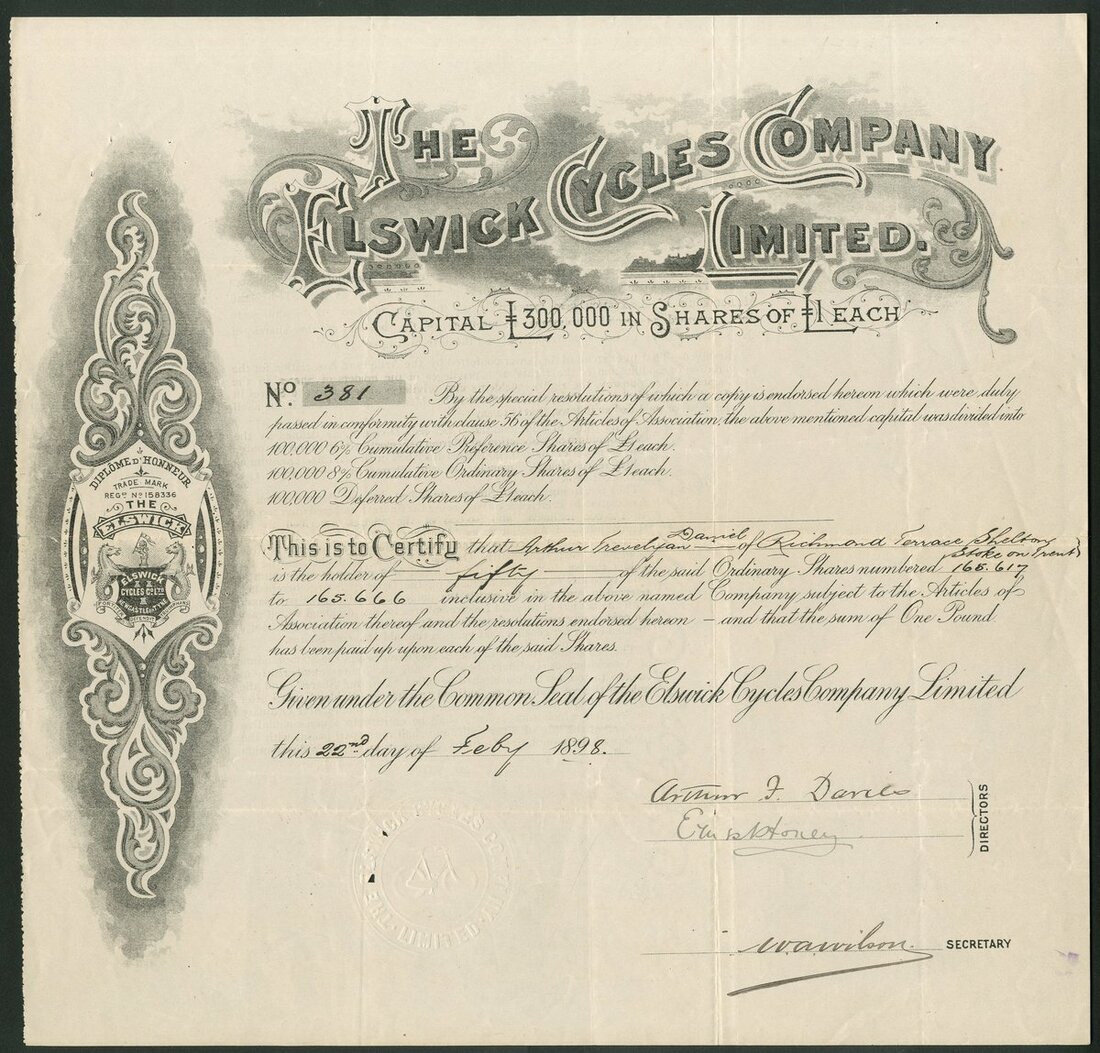 THE
ELSWICK CYCLES COMPANY
LIMITED.
CAPITAL £300,000 IN SHARES OF £1 EACH
No. 381 By the special resolutions of which a copy is endorsed hereon which were duly
passed in conformity with clause 56 of the Articles of Association, the above mentioned capital was divided into
100,000 6% Cumulative Preference Shares of £1 each.
100,000 8% Cumulative Ordinary Shares of £1 each.
100,000 Deferred Shares of £1 each.
This is to Certify that Arthur Trevelyan Daniel of Richmond Terrace Shelton
Stoke on Trent
is the holder of fifty of the said Ordinary Shares numbered 165.617
to 165.666 inclusive in the above named Company subject to the Articles of
Association thereof and the resolutions endorsed hereon – and that the sum of One Pound
has been paid up upon each of the said Shares.
Given under the Common Seal of the Elswick Cycles Company Limited
this 22nd day of Feby 1898.
Arthur F. Davies
Honey
DIRECTORS
W.A. Wilson SECRETARY
DIPLÔME D'HONNEUR
TRADE MARK
REGD No 158336
THE
ELSWICK
ELSWICK
CYCLES CO LTD
NEWCASTLE ON TYNE
LIMITED